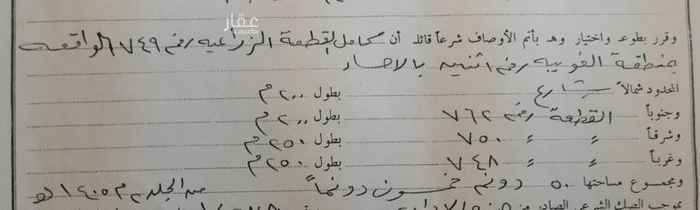 عقار
وقرر بطوعه واختياره وهو بأتم الأوصاف شرعاً قائلاً أن كامل القطعة الزراعية رقم ٧٤٩ الواقعه
بمنطقة الغويبه رقم اثنين بالاحساء
المحدود شمالاً شارع بطول ٢٠٠ م
وجنوباً القطعة رقم ٧٦٢ بطول ٢٠٠ م
وشرقاً " " ٧٥٠ بطول ٢٥٠ م
وغرباً " " ٧٤٨ بطول ٢٥٠ م
ومجموع مساحتها ٥٠ دونم خمسون دونماً من الجلد ٢ م ١٤٠٥ هـ
بموجب الصك الشرعي الصادر من